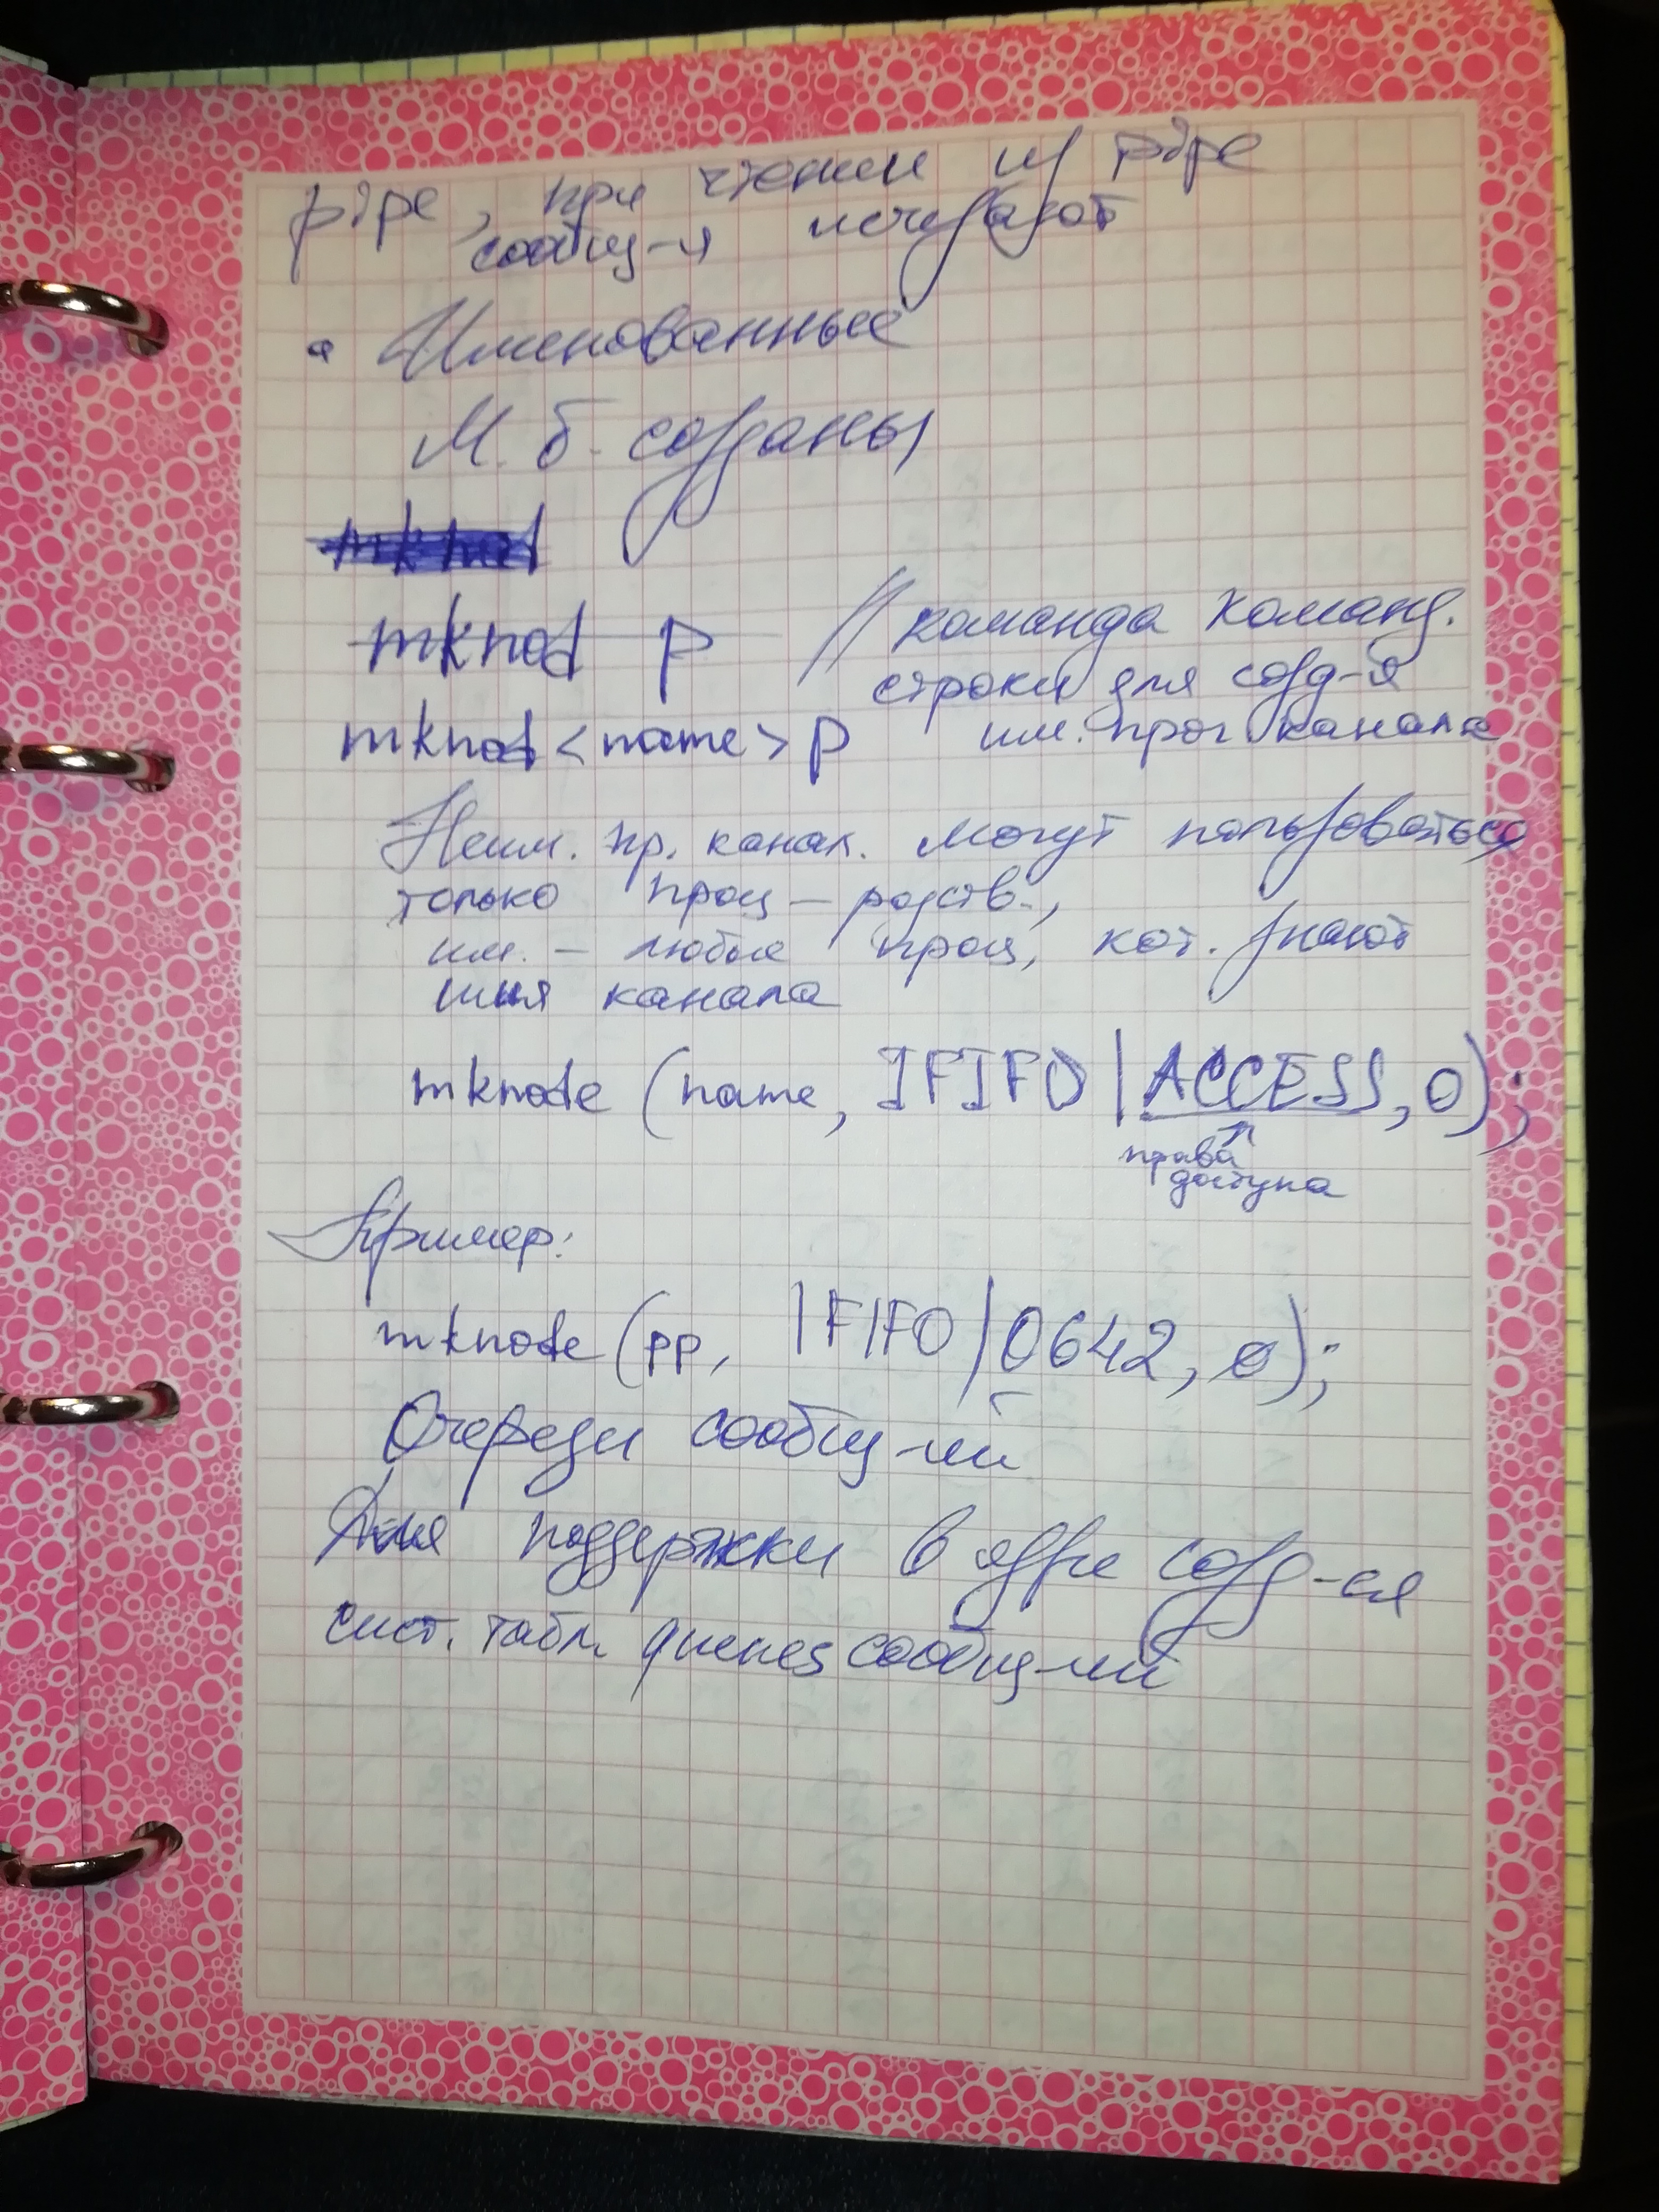 pipe, при чтении из pipe
сообщ-я исчезают
• Именованные
М. б. созданы
mknod p // команда команд.
строки для созд-я
mknod <name> p им. прог канала
Неим. пр. канал. могут пользоваться
только проц – родств.,
им. – любые проц, кот. знают
имя канала
mknode (name, IFIFO | ACCESS, 0);
права
доступа
Пример:
mknode (pp, IFIFO | 0642, 0);
Очереди сообщ-ий
Для поддержки в ядре созд-ся
сист. табл. queues сообщ-ий